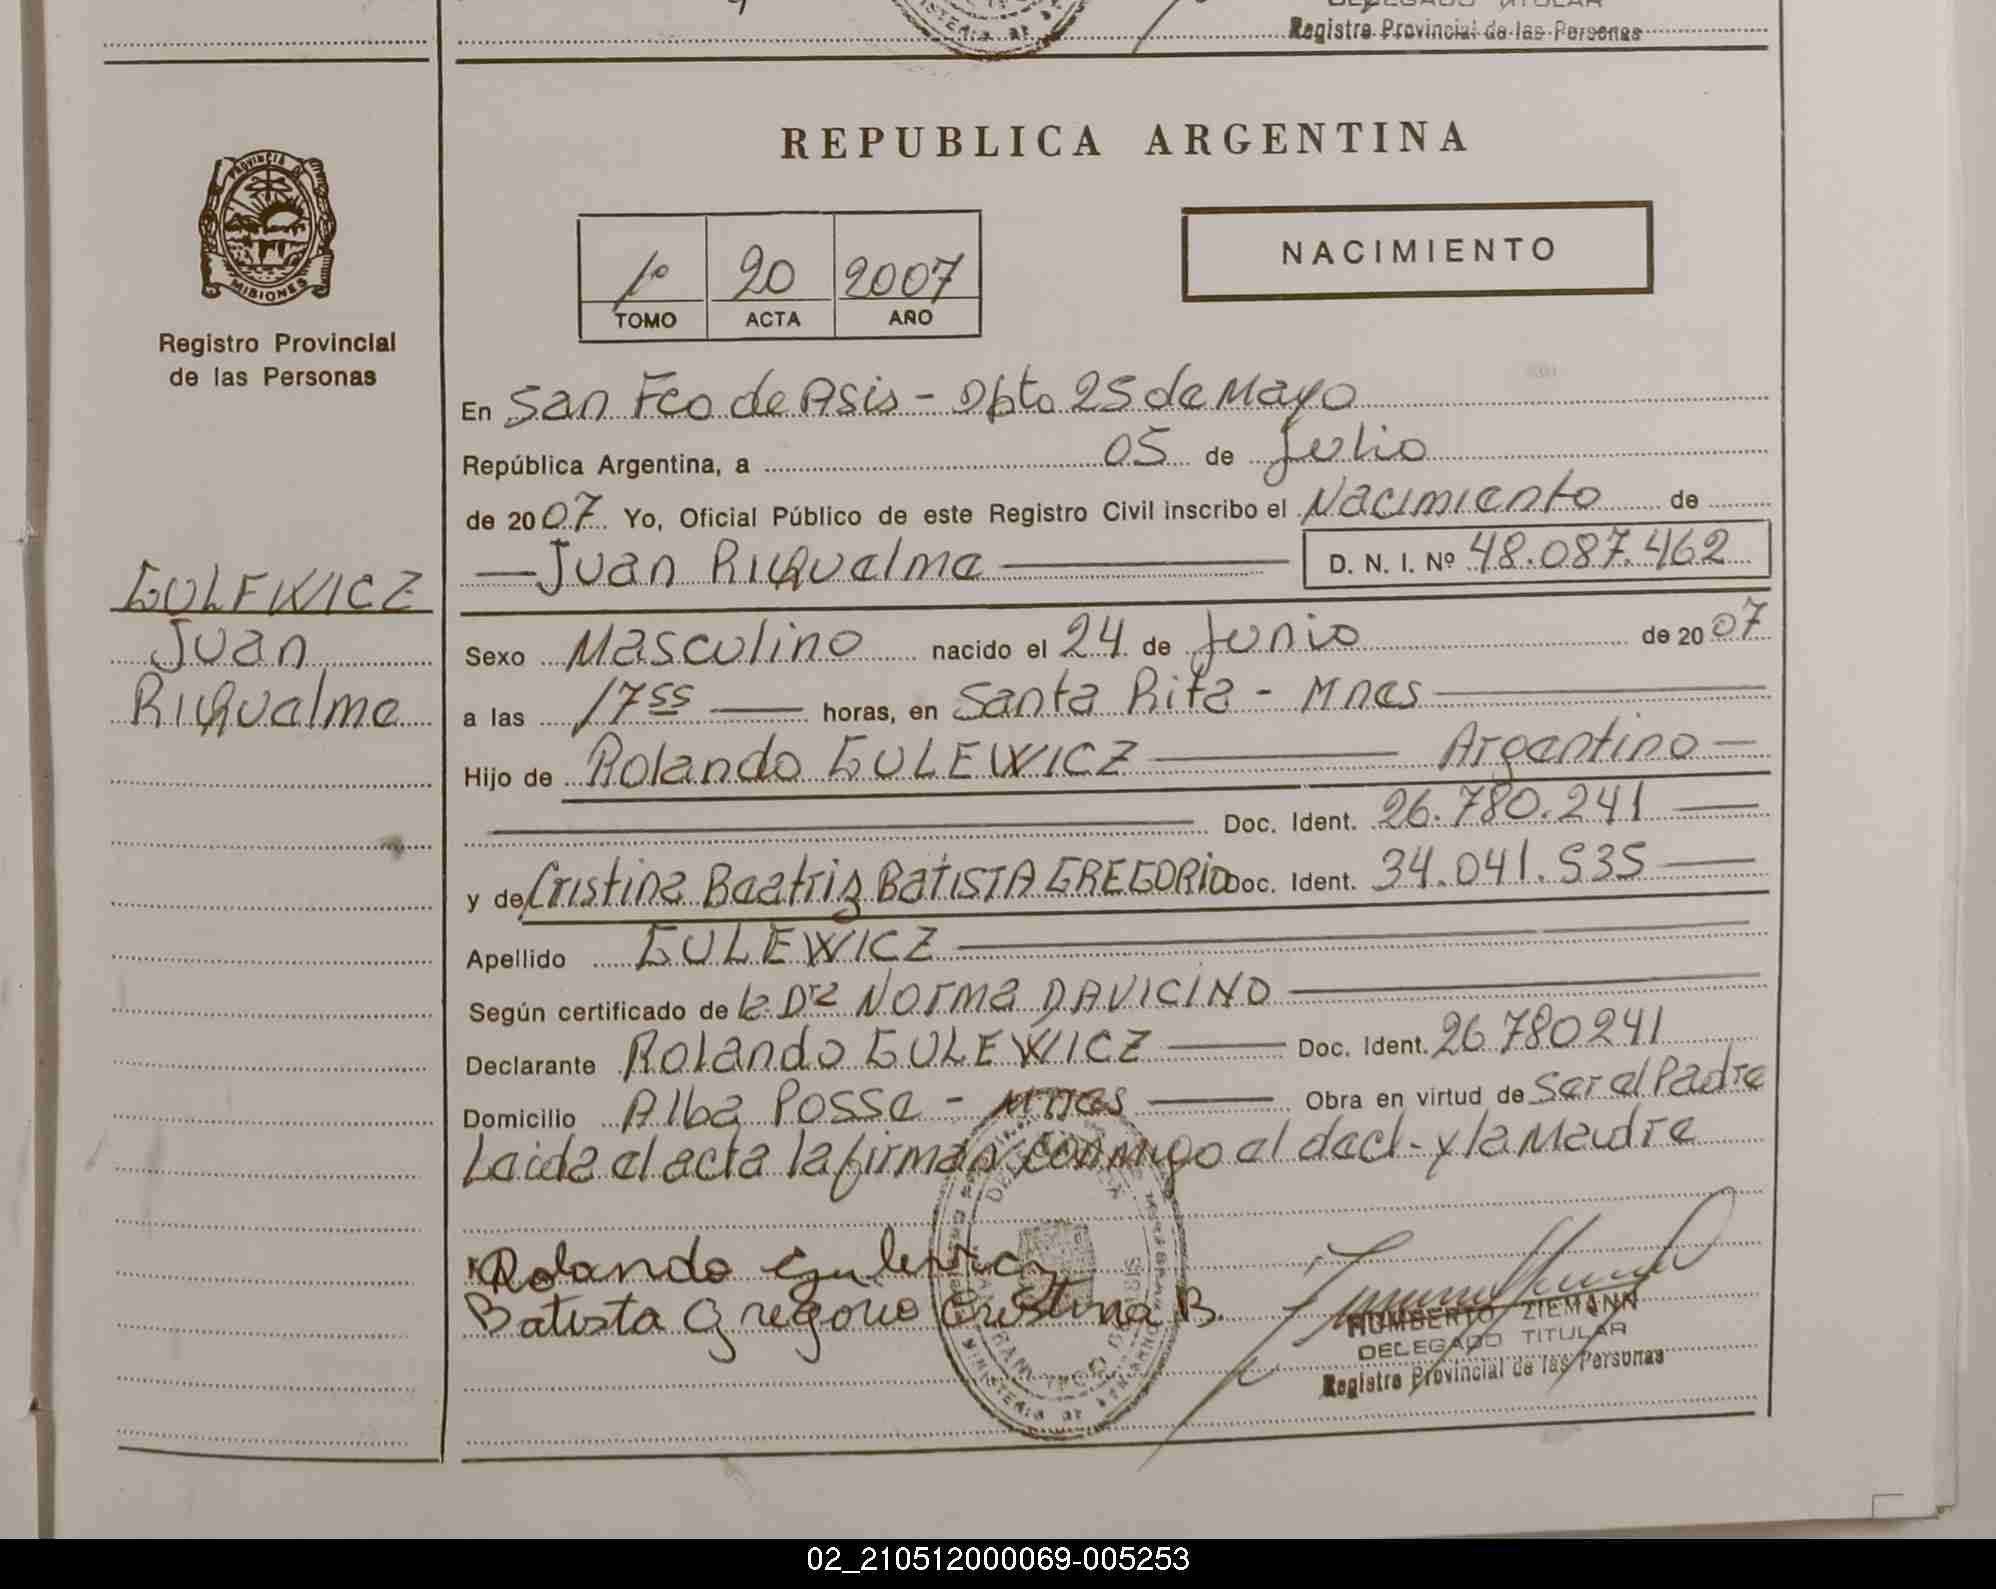 DELEGADO TITULAR
Registro Provincial de las Personas
PROVINCIA DE
MISIONES
Registro Provincial
de las Personas
GULEWICZ
Juan
Riquelme
REPUBLICA ARGENTINA
1º 20 2007
TOMO ACTA AÑO
NACIMIENTO
En San Fco de Asis - Dpto 25 de Mayo
República Argentina, a 05 de Julio
de 2007 Yo, Oficial Público de este Registro Civil inscribo el Nacimiento de
Juan Riquelme D. N. I. Nº 48.087.462
Sexo Masculino nacido el 24 de Junio de 2007
a las 17 55 horas, en Santa Rita - Mnes
Hijo de Rolando GULEWICZ Argentino
Doc. Ident. 26.780.241
y de Cristina Beatriz BATISTA GREGORIO Doc. Ident. 34.041.535
Apellido GULEWICZ
Según certificado de la Dra Norma DAVICINO
Declarante Rolando GULEWICZ Doc. Ident. 26780241
Domicilio Alba Posse - Mnes Obra en virtud de Ser el Padre
Leida el acta la firman conmigo el decl- y la Madre
Rolando Gulewicz
Batista Gregorio Cristina B.
HUMBERTO ZIEMANN
DELEGADO TITULAR
Registro Provincial de las Personas
02_210512000069-005253